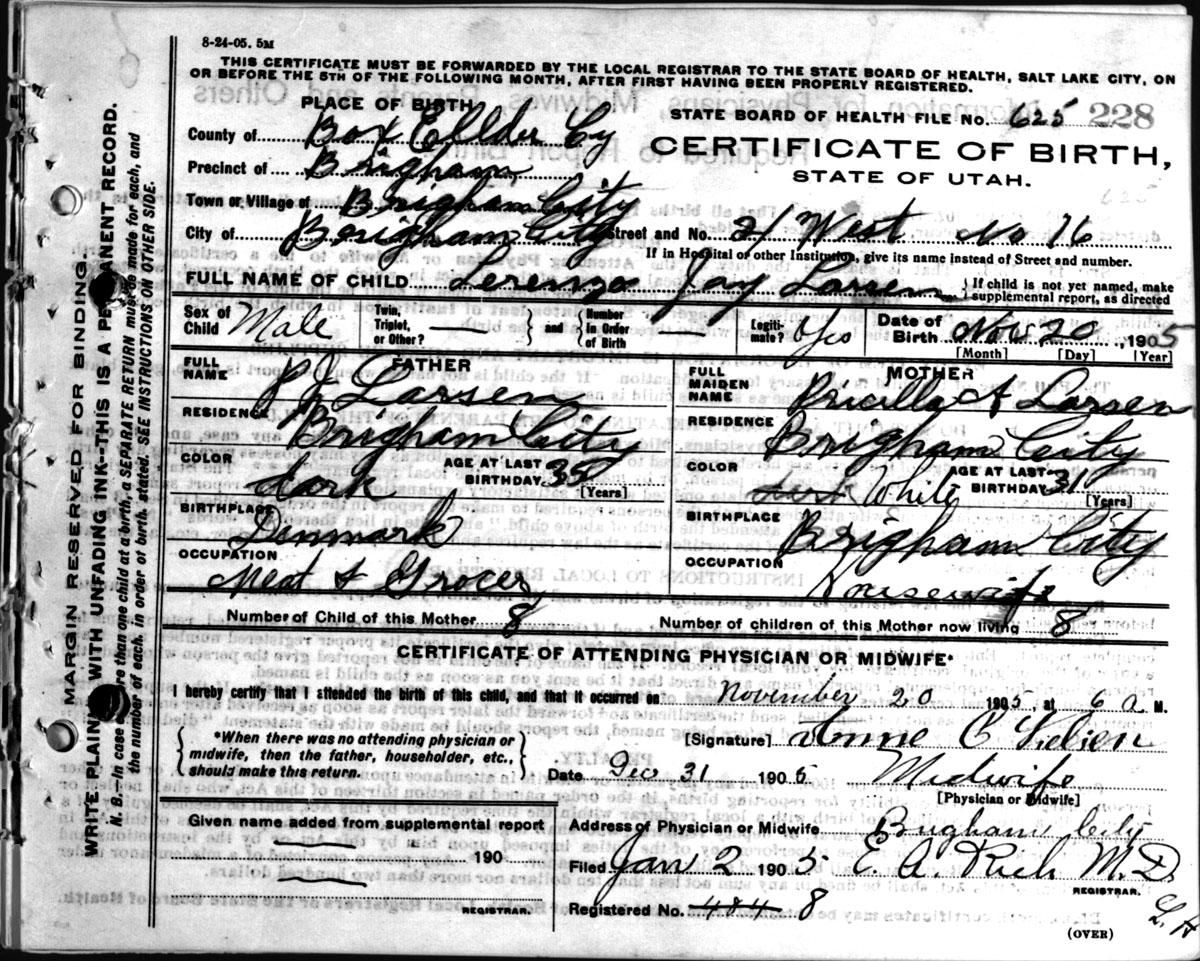 8-24-05. 5M
THIS CERTIFICATE MUST BE FORWARDED BY THE LOCAL REGISTRAR TO THE STATE BOARD OF HEALTH, SALT LAKE CITY, ON
OR BEFORE THE 5TH OF THE FOLLOWING MONTH, AFTER FIRST HAVING BEEN PROPERLY REGISTERED.
PLACE OF BIRTH
STATE BOARD OF HEALTH FILE No. 625 228
County of Box Ellder Cy
CERTIFICATE OF BIRTH,
STATE OF UTAH.
Precinct of Brigham
Town or Village of Brigham City
City of Brigham City Street and No. 21 West No 16
If in Hospital or other Institution, give its name instead of Street and number.
FULL NAME OF CHILD Lerenzo Jay Larsen { If child is not yet named, make
supplemental report, as directed
Sex of Child Male
Twin, Triplet, or Other? — } and { Number in Order of Birth —
Legiti-mate? Yes
Date of Birth Nov 20, 1905
[Month] [Day] [Year]
FATHER
FULL NAME P J Larsen
RESIDENCE Brigham City
COLOR dark
AGE AT LAST BIRTHDAY 35 [Years]
BIRTHPLACE Denmark
OCCUPATION Meat & Grocer
MOTHER
FULL MAIDEN NAME Pricilla A Larsen
RESIDENCE Brigham City
COLOR White
AGE AT LAST BIRTHDAY 31 [Years]
BIRTHPLACE Brigham City
OCCUPATION Housewife
Number of Child of this Mother 8 Number of children of this Mother now living 8
CERTIFICATE OF ATTENDING PHYSICIAN OR MIDWIFE*
I hereby certify that I attended the birth of this child, and that it occurred on November 20 1905, at 6 a M.
{ *When there was no attending physician or
midwife, then the father, householder, etc.,
should make this return. }
[Signature] Anne C
Date Dec 31 1905 Midwife
[Physician or Midwife]
Given name added from supplemental report
— 190
—
REGISTRAR.
Address of Physician or Midwife Brigham City
Filed Jan 2 1905 E. A. Rich M.D.
REGISTRAR.
Registered No. 484 8
L H
(OVER)
MARGIN RESERVED FOR BINDING.
WRITE PLAINLY WITH UNFADING INK--THIS IS A PERMANENT RECORD.
N. B.--In case of more than one child at a birth, a SEPARATE RETURN must be made for each, and
the number of each, in order of birth, stated. SEE INSTRUCTIONS ON OTHER SIDE.